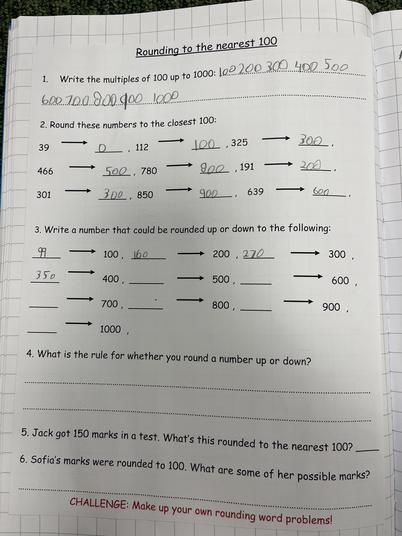 Rounding to the nearest 100
1. Write the multiples of 100 up to 1000: 100 200 300 400 500
600 700 800 900 1000
2. Round these numbers to the closest 100:
39 → 0 , 112 → 100 , 325 → 300 ,
466 → 500 , 780 → 800 , 191 → 200 ,
301 → 300 , 850 → 900 , 639 → 600 ,
3. Write a number that could be rounded up or down to the following:
99 → 100 , 160 → 200 , 270 → 300 ,
350 → 400 , ____ → 500 , ____ → 600 ,
____ → 700 , ____ → 800 , ____ → 900 ,
____ → 1000 ,
4. What is the rule for whether you round a number up or down?
5. Jack got 150 marks in a test. What's this rounded to the nearest 100? ____
6. Sofia's marks were rounded to 100. What are some of her possible marks?
CHALLENGE: Make up your own rounding word problems!